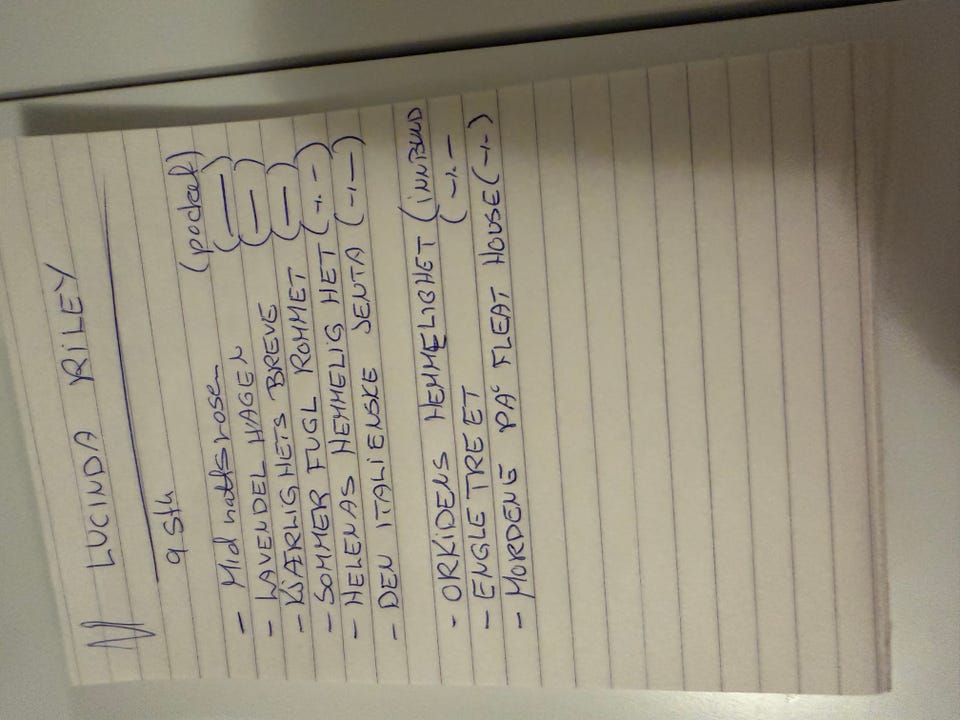 LUCINDA RILEY
9 Stk
- Midnattsrosen (pocket)
- LAVENDEL HAGEN (—)
- KJÆRLIGHETS BREVE (—)
- SOMMER FUGL ROMMET (—)
- HELENAS HEMMELIG HET (-"-)
- DEN ITALIENSKE JENTA (-"-)
- ORKIDENS HEMMELIGHET (INNBUND
- ENGLE TRE ET (-"-
- MORDENE PÅ FLEAT HOUSE (-"-)